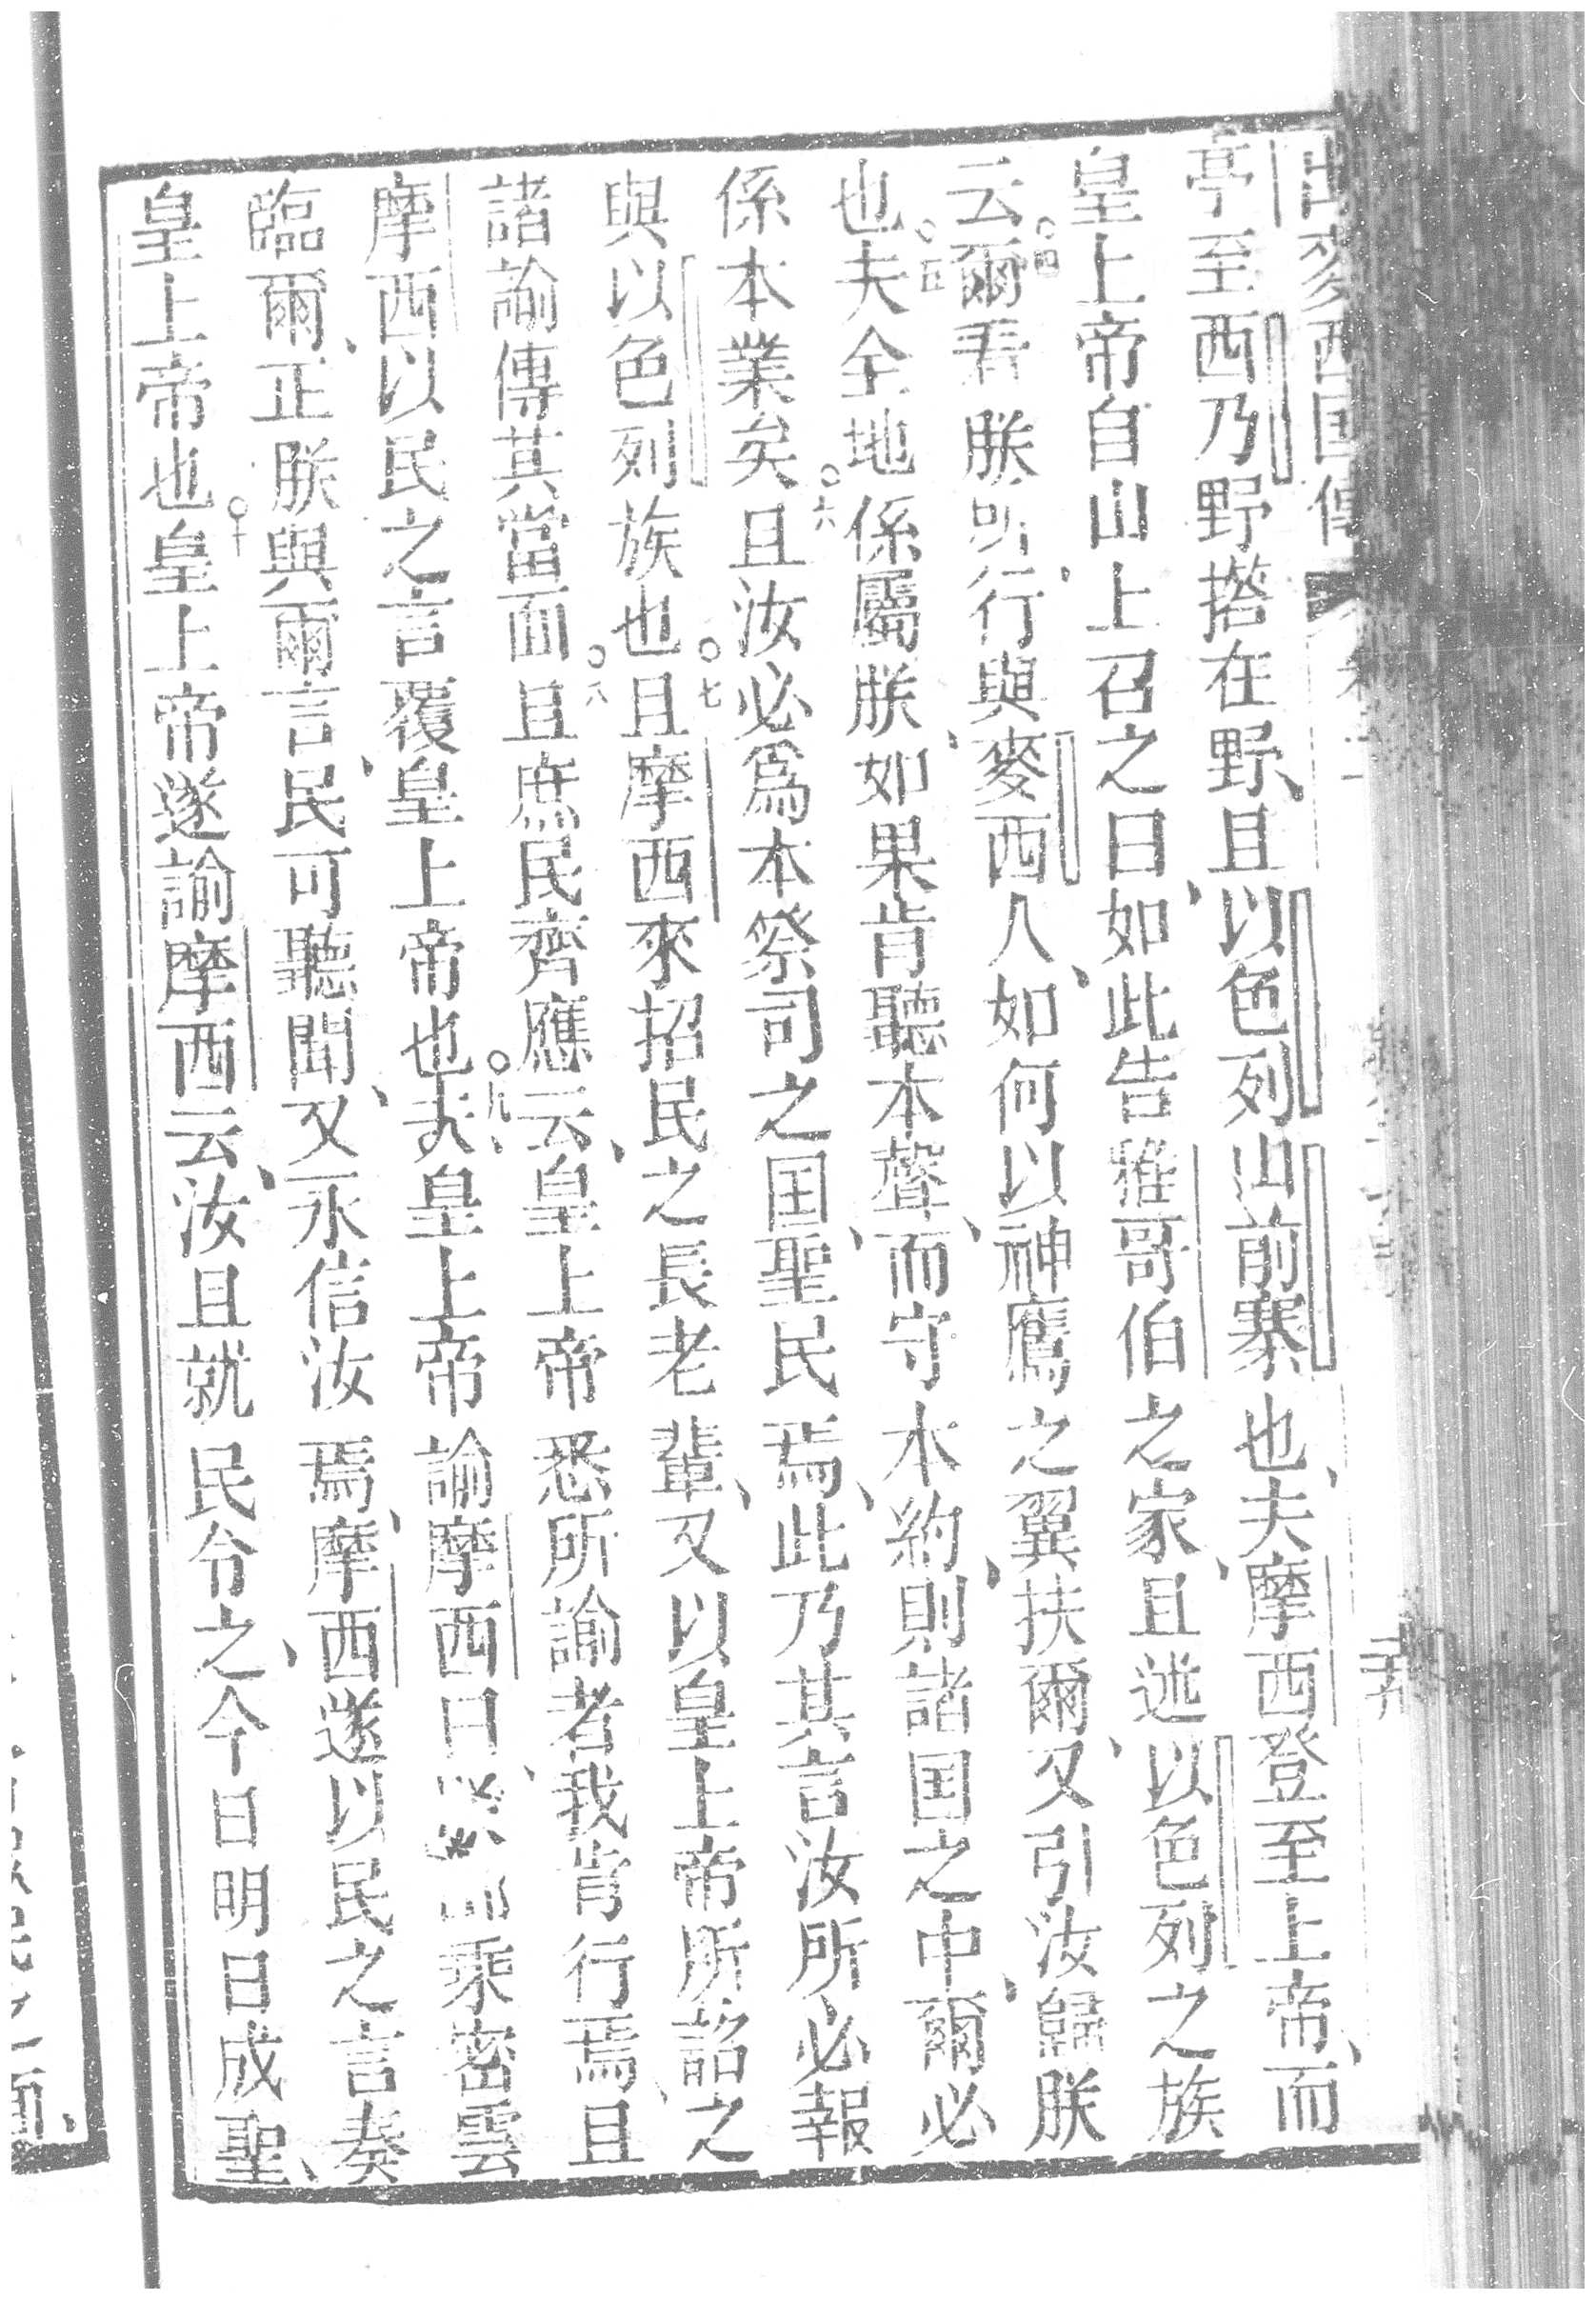 出麥西国傳
亭至西乃野撘在野、且以色列山前寨也、夫摩西登至上帝、而
皇上帝自山上召之曰、如此告雅哥伯之家、且述以色列之族
云○四爾看朕所行與麥西人、如何以神鷹之翼扶爾、又引汝歸朕
也○五夫全地係屬朕、如果肯聽本聲、而守本約、則諸国之中、爾必
係本業矣○六且汝必爲本祭司之国、聖民焉、此乃其言汝所必報
與以色列族也○七且摩西來招民之長老輩、又以皇上帝所諭之
諸諭傳其當面○八且庶民齊應云、皇上帝悉所諭者我肯行焉、且
摩西以民之言覆皇上帝也○九夫皇上帝諭摩西曰、乘密雲
臨爾、正朕與爾言、民可聽聞、又永信汝焉、摩西遂以民之言奏
皇上帝也○十皇上帝遂諭摩西云、汝且就民令之、今日明日成聖、